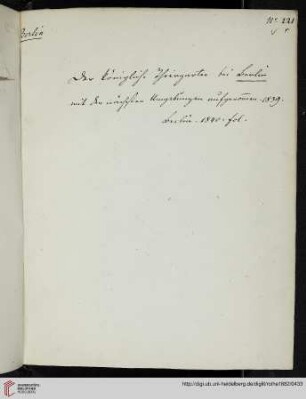 Nº 221
Berlin
Der Königliche Thiergarten bei Berlin
mit den nächsten Umgebungen aufgenommen 1839.
Berlin. 1840. fol.
UNIVERSITÄTS-
BIBLIOTHEK
HEIDELBERG
http://digi.ub.uni-heidelberg.de/diglit/rothe1882/0433